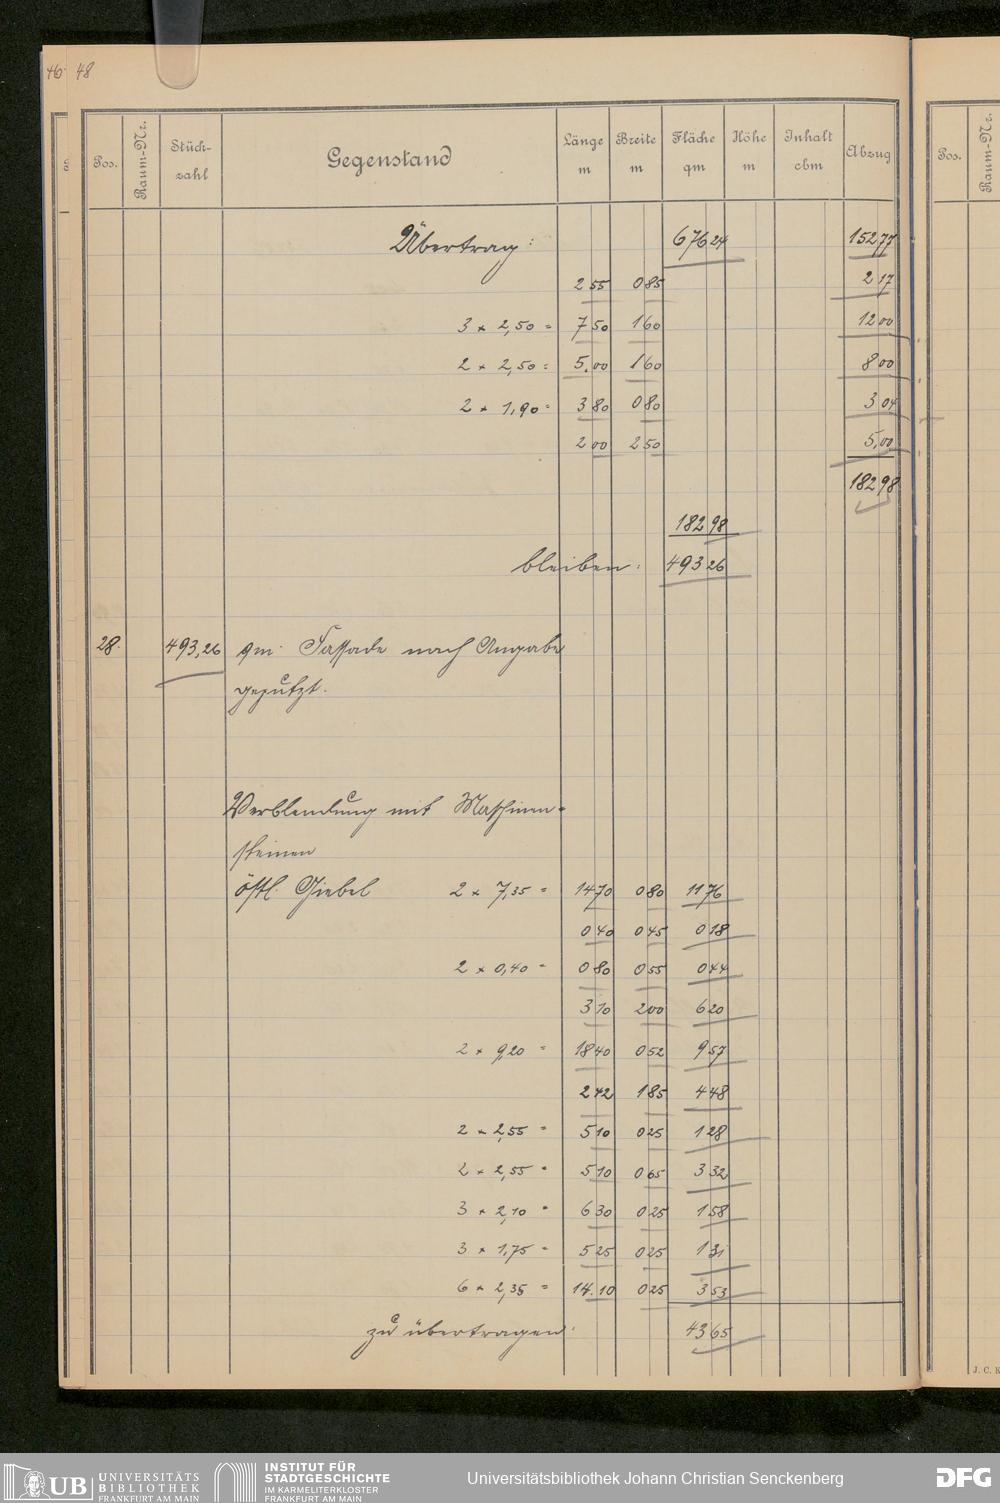 46 48
Pos. Raum-Nr. Stück-zahl Gegenstand Länge m Breite m Fläche qm Höhe m Inhalt cbm Abzug
Pos. Raum-Nr.
Übertrag: 676 24 152 77
2 55 0 85 2 17
3 x 2,50 = 7 50 1 60 12 00
2 x 2,50 = 5.00 1 60 8 00
2 x 1,90 = 3 80 0 80 3 04
2 00 2 50 5,00
182 98
182 98
bleiben: 493 26
28. 493,26 qm. Fassade nach Angabe
geputzt.
Verblendung mit Maschinen-
steinen
östl. Giebel 2 x 7,35 = 14 70 0 80 11 76
0 40 0 45 0 18
2 x 0,40 = 0 80 0 55 0 44
3 10 2 00 6 20
2 x 9,20 = 18 40 0 52 9 57
2 42 1 85 4 48
2 x 2,55 = 5 10 0 25 1 28
2 x 2,55 = 5 10 0 65 3 32
3 x 2,10 = 6 30 0 25 1 58
3 x 1,75 = 5 25 0 25 1 31
6 x 2,35 = 14.10 0 25 3 53
zu übertragen: 43 65
J. C. K
UB UNIVERSITÄTS
BIBLIOTHEK
FRANKFURT AM MAIN
INSTITUT FÜR
STADTGESCHICHTE
IM KARMELITERKLOSTER
FRANKFURT AM MAIN
Universitätsbibliothek Johann Christian Senckenberg
DFG